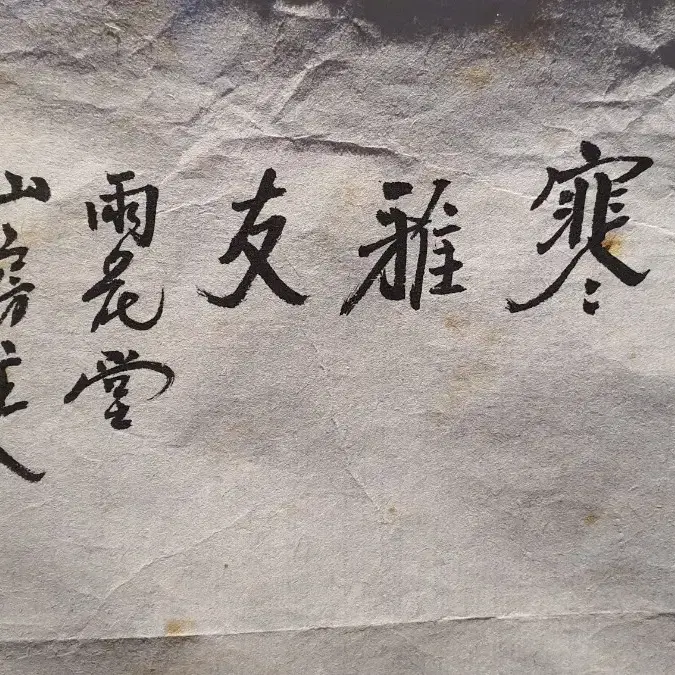 寒雅友
雨花堂
山房主人